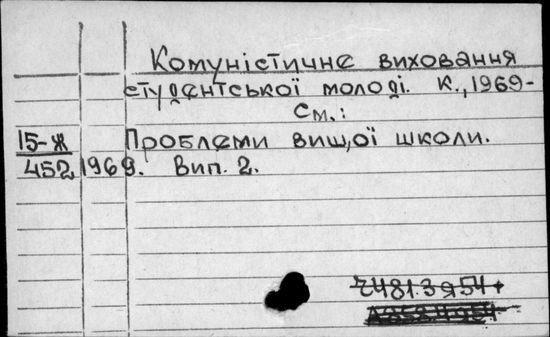 Комуністичне виховання
студентської молоді. К., 1969-
См.:
15-Ж Проблеми вищої школи.
452 1969. Вип. 2.
Ч481.3я54+